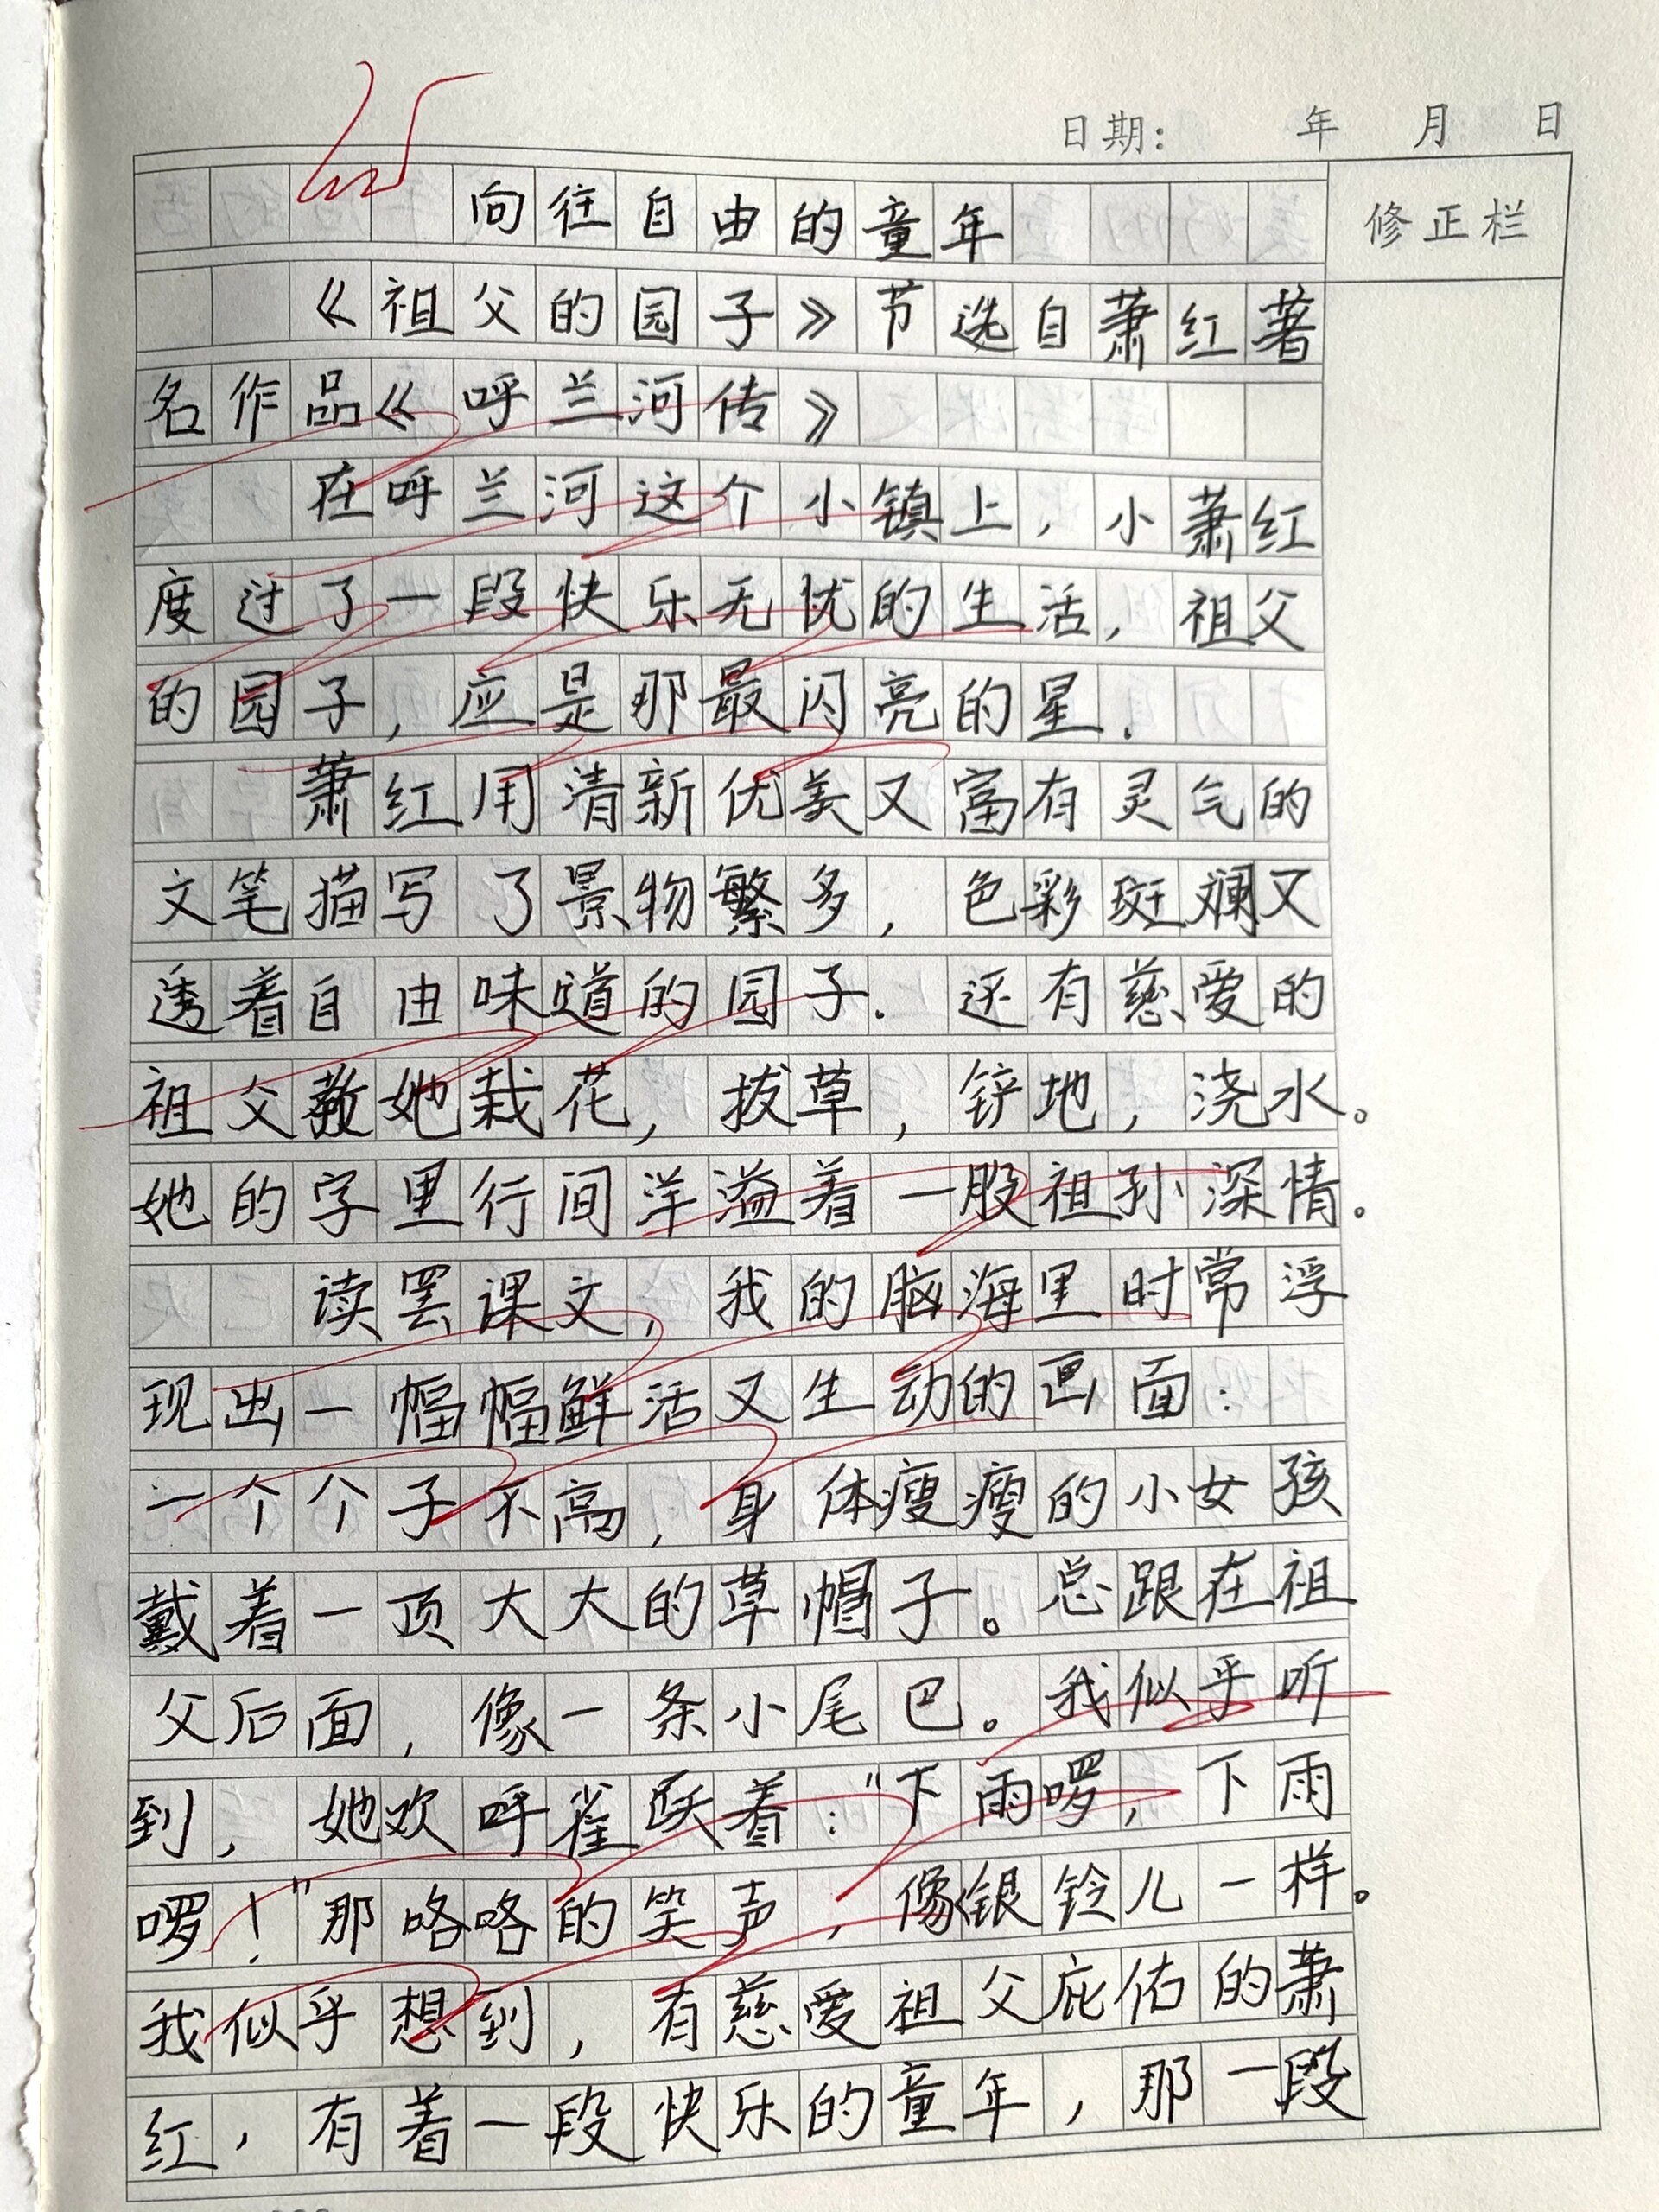 25
日期： 年 月 日
向往自由的童年
修正栏
《祖父的园子》节选自萧红著
名作品《呼兰河传》
在呼兰河这个小镇上，小萧红
度过了一段快乐无忧的生活，祖父
的园子，应是那最闪亮的星.
萧红用清新优美又富有灵气的
文笔描写了景物繁多，色彩斑斓又
透着自由味道的园子.还有慈爱的
祖父教她栽花，拔草，铲地，浇水。
她的字里行间洋溢着一股祖孙深情。
读罢课文，我的脑海里时常浮
现出一幅幅鲜活又生动的画面：
一个个子不高，身体瘦瘦的小女孩
戴着一顶大大的草帽子。总跟在祖
父后面，像一条小尾巴。我似乎听
到，她欢呼雀跃着："下雨啰，下雨
啰！"那咯咯的笑声，像银铃儿一样。
我似乎想到，有慈爱祖父庇佑的萧
红，有着一段快乐的童年，那一段